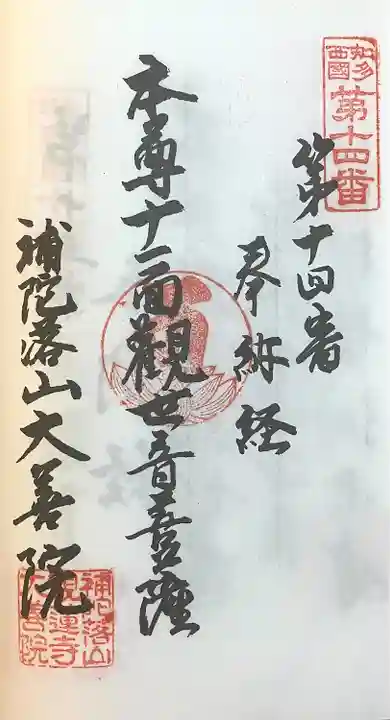 知多
西國
第十四番
第十四番
奉納経
本尊十一面観世音菩薩
補陀落山大善院
補陀落山
観蓮寺
大善院